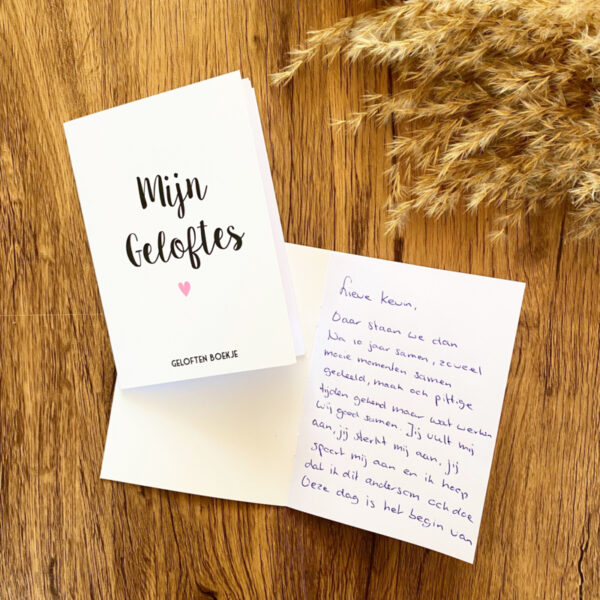 Mijn
Geloftes
GELOFTEN BOEKJE
Lieve Kevin,
Daar staan we dan
Na 10 jaar samen, zoveel
mooie momenten samen
gedeeld, maak och pittige
tijden gekend maar wat werken
wij goed samen. Jij vult mij
aan, jij sterkt mij aan, jij
spoort mij aan en ik hoop
dat ik dit andersom och doe
Deze dag is het begin van